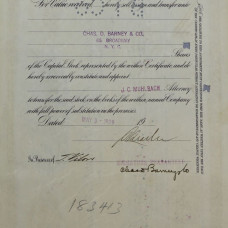 For Value received hereby sell, assign and transfer unto
CHAS. D. BARNEY & CO.
65 BROADWAY
N. Y. C.
Shares
of the Capital Stock represented by the within Certificate, and do
hereby irrevocably constitute and appoint
J. C. MUHLBACH Attorney
to transfer the said stock on the books of the within named Company
with full power of substitution in the premises.
Dated
In Presence of
Chas D Barney & Co
183413